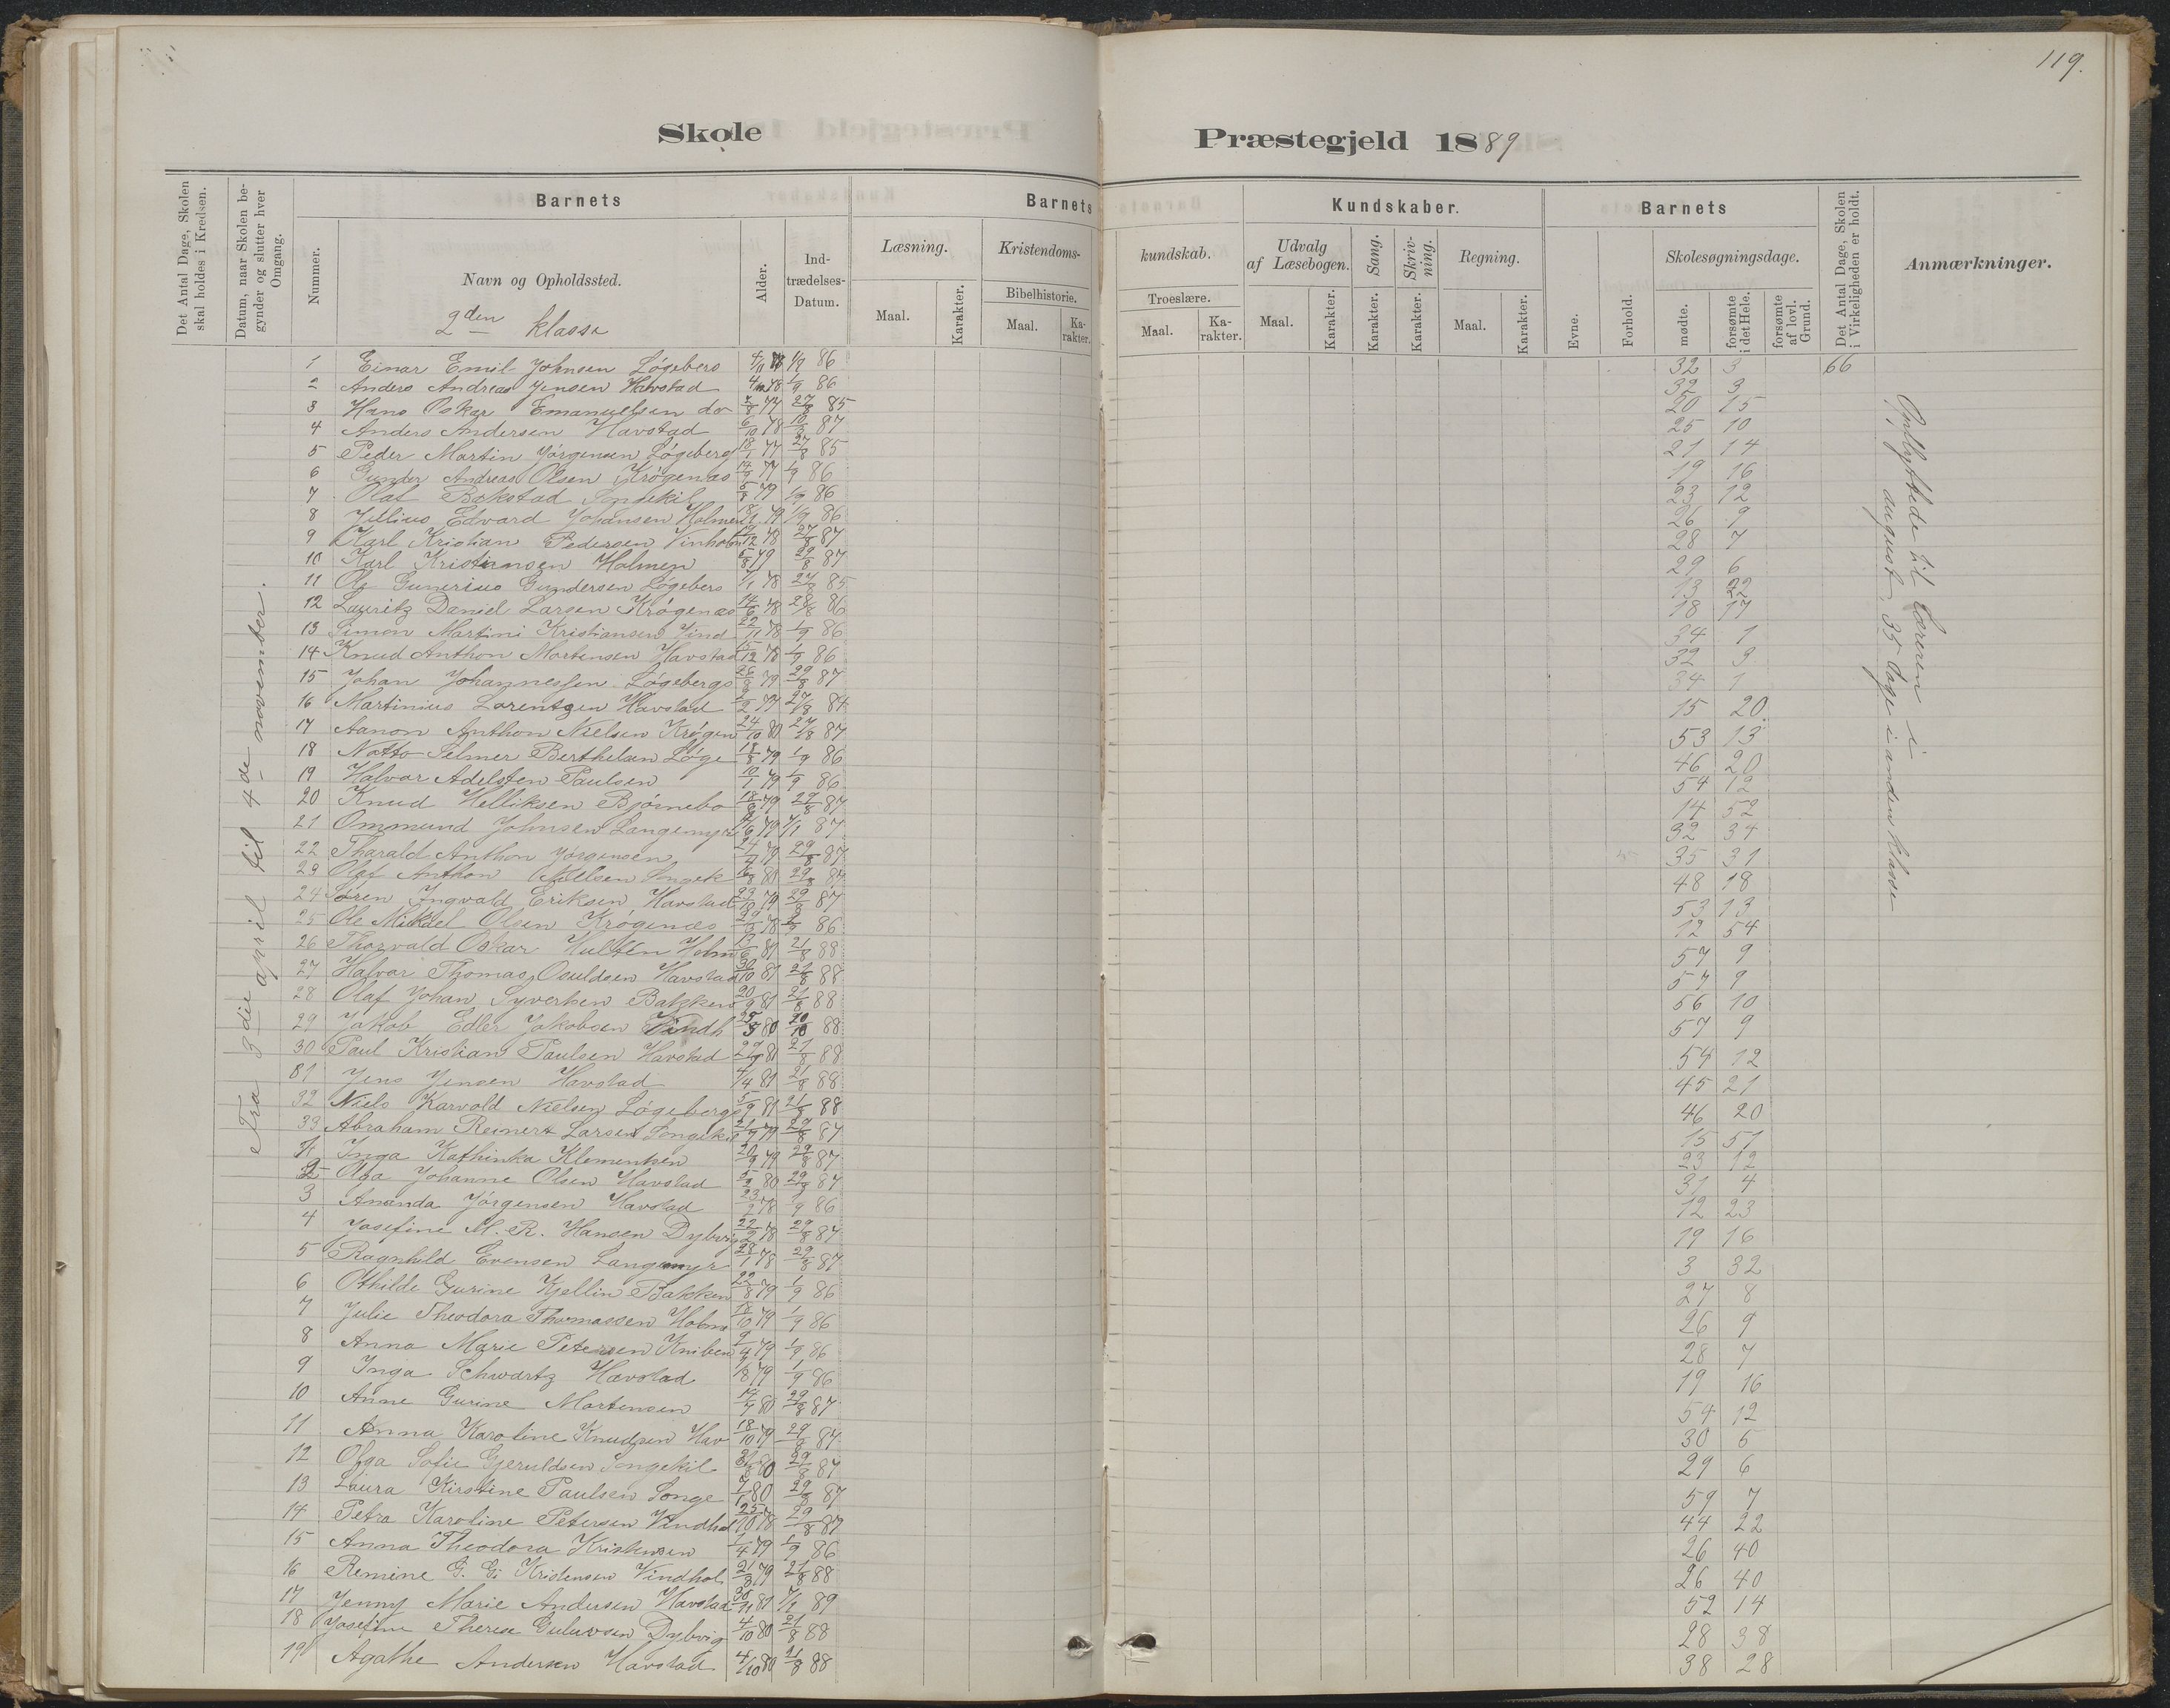 119.
Skole Præstegjeld 1889
Det Antal Dage, Skolen skal holdes i Kredsen.
Datum, naar Skolen begynder og slutter hver Omgang.
Barnets
Nummer.
Navn og Opholdssted.
2den klasse
Alder.
Indtrædelses-Datum.
Barnets Kundskaber.
Læsning.
Maal.
Karakter.
Kristendomskundskab.
Bibelhistorie.
Maal.
Karakter.
Troeslære.
Maal.
Karakter.
Udvalg af Læsebogen.
Maal.
Karakter.
Sang.
Karakter.
Skrivning.
Karakter.
Regning.
Maal.
Karakter.
Barnets
Evne.
Forhold.
Skolesøgningsdage.
mødte.
forsømte i det Hele.
forsømte af lovl. Grund.
Det Antal Dage, Skolen i Virkeligheden er holdt.
Anmærkninger.
Fra 3die april til 4de november.
1 Einar Emil Johnsen Løgebers 4/11 78 1/9 86 32 3 66
2 Anders Andreas Jensen Havstad 78 1/9 86 32 3
3 Hans Oskar Emanuelsen do 77 27/8 85 20 15
4 Anders Andersen Havstad 6/10 78 87 25 10
5 Peder Martin Jørgensen Løgeberg 18/1 77 27/8 85 21 14
6 Gunder Andreas Olsen Krøgenæs 77 1/9 86 19 16
7 Olaf Bakstad Songekil 5/8 79 1/9 86 23 12
8 Jullius Edvard Johansen Holmen 79 1/9 86 26 9
9 Karl Kristian Pedersen Vinholm 19/12 78 87 28 7
10 Karl Kristiansen Holmen 5/8 79 29/8 87 29 6
11 Ole Gunerius Gundersen Løgebers 7/1 78 27/8 85 13 22
12 Lauritz Daniel Larsen Krøgenæs 14/6 78 28/8 86 18 17
13 Simon Martini Kristiansen Vind 22/11 78 1/9 86 34 1
14 Knud Anthon Mortensen Havstad 15/12 78 1/9 86 32 3
15 Johan Johannessen Løgebergs 79 29/8 87 34 1
16 Martinius Lorentzen Havstad 77 27/8 84 15 20
17 Aanon Anthon Nielsen Krøgen 24/10 80 87 53 13
18 Notto Selmer Berthelsen Løge 18/8 79 1/9 86 46 20
19 Halvor Adelsten Paulsen 10/1 79 1/9 86 54 12
20 Knud Helliksen Bjørnebo 18/8 79 29/8 87 14 52
21 Ommund Johnsen Langemyr 79 87 32 34
22 Tharald Anthon Jørgensen 79 29/8 87 35 31
23 Olaf Anthon Nielsen Songek 80 29/8 87 48 18
24 Søren Ingvald Eriksen Havstad 23/10 79 29/8 87 53 13
25 Ole Mikael Olsen Krøgenæs 78 86 12 54
26 Thorvald Oskar Hultén Holm 81 21/8 88 57 9
27 Halvor Thomas Osuldsen Havstad 30/10 81 21/8 88 57 9
28 Olaf Johan Syvertsen Bakken 20/9 81 21/8 88 56 10
29 Jakob Edler Jakobsen Vindh 80 88 57 9
30 Paul Kristian Paulsen Havstad 81 21/8 88 54 12
31 Jens Jensen Havstad 4/4 81 21/8 88 45 21
32 Niels Karvold Nielsen Løgebergs 5/9 81 21/8 88 46 20
33 Abraham Reinert Larsen Songekil 79 29/8 87 15 51
1 Inga Kathinka Klementsen 20/9 79 29/8 87 23 12
2 Olga Johanne Olsen Havstad 80 29/8 87 31 4
3 Ananda Jørgensen Havstad 78 1/9 86 12 23
4 Josefine M. R. Hansen Dybvig 22/2 78 29/8 87 19 16
5 Ragnhild Evensen Langemyr 28/1 78 29/8 87 3 32
6 Othilde Gurine Kjellin Bakken 22/8 79 1/9 86 27 8
7 Julie Theodora Thomassen Holm 18/10 79 1/9 86 26 9
8 Anna Marie Petersen Kniben 9/4 79 1/9 86 28 7
9 Inga Schwartz Havstad 79 1/9 86 19 16
10 Anne Gurine Mortensen 80 29/8 87 54 12
11 Anna Karoline Knudsen Hav 18/10 79 29/8 87 30 5
12 Olga Sofie Gjeruldsen Songekil 80 29/8 87 29 6
13 Laura Kirstine Paulsen Songe 80 29/8 87 59 7
14 Petra Karoline Petersen Vindhol 25/10 78 29/8 87 44 22
15 Anna Theodora Kristensen 1/4 79 1/9 86 26 40
16 Remine G. G. Kristensen Vindhol 21/3 79 21/8 88 26 40
17 Jenny Marie Andersen Havstad 81 89 52 14
18 Josefine Therese Guluvsen Dybvig 4/10 80 21/8 88 28 38
19 Agathe Andersen Havstad 4/10 80 21/8 88 38 28
Opflyttede til Læreren i
august, 35 dage i anden klasse